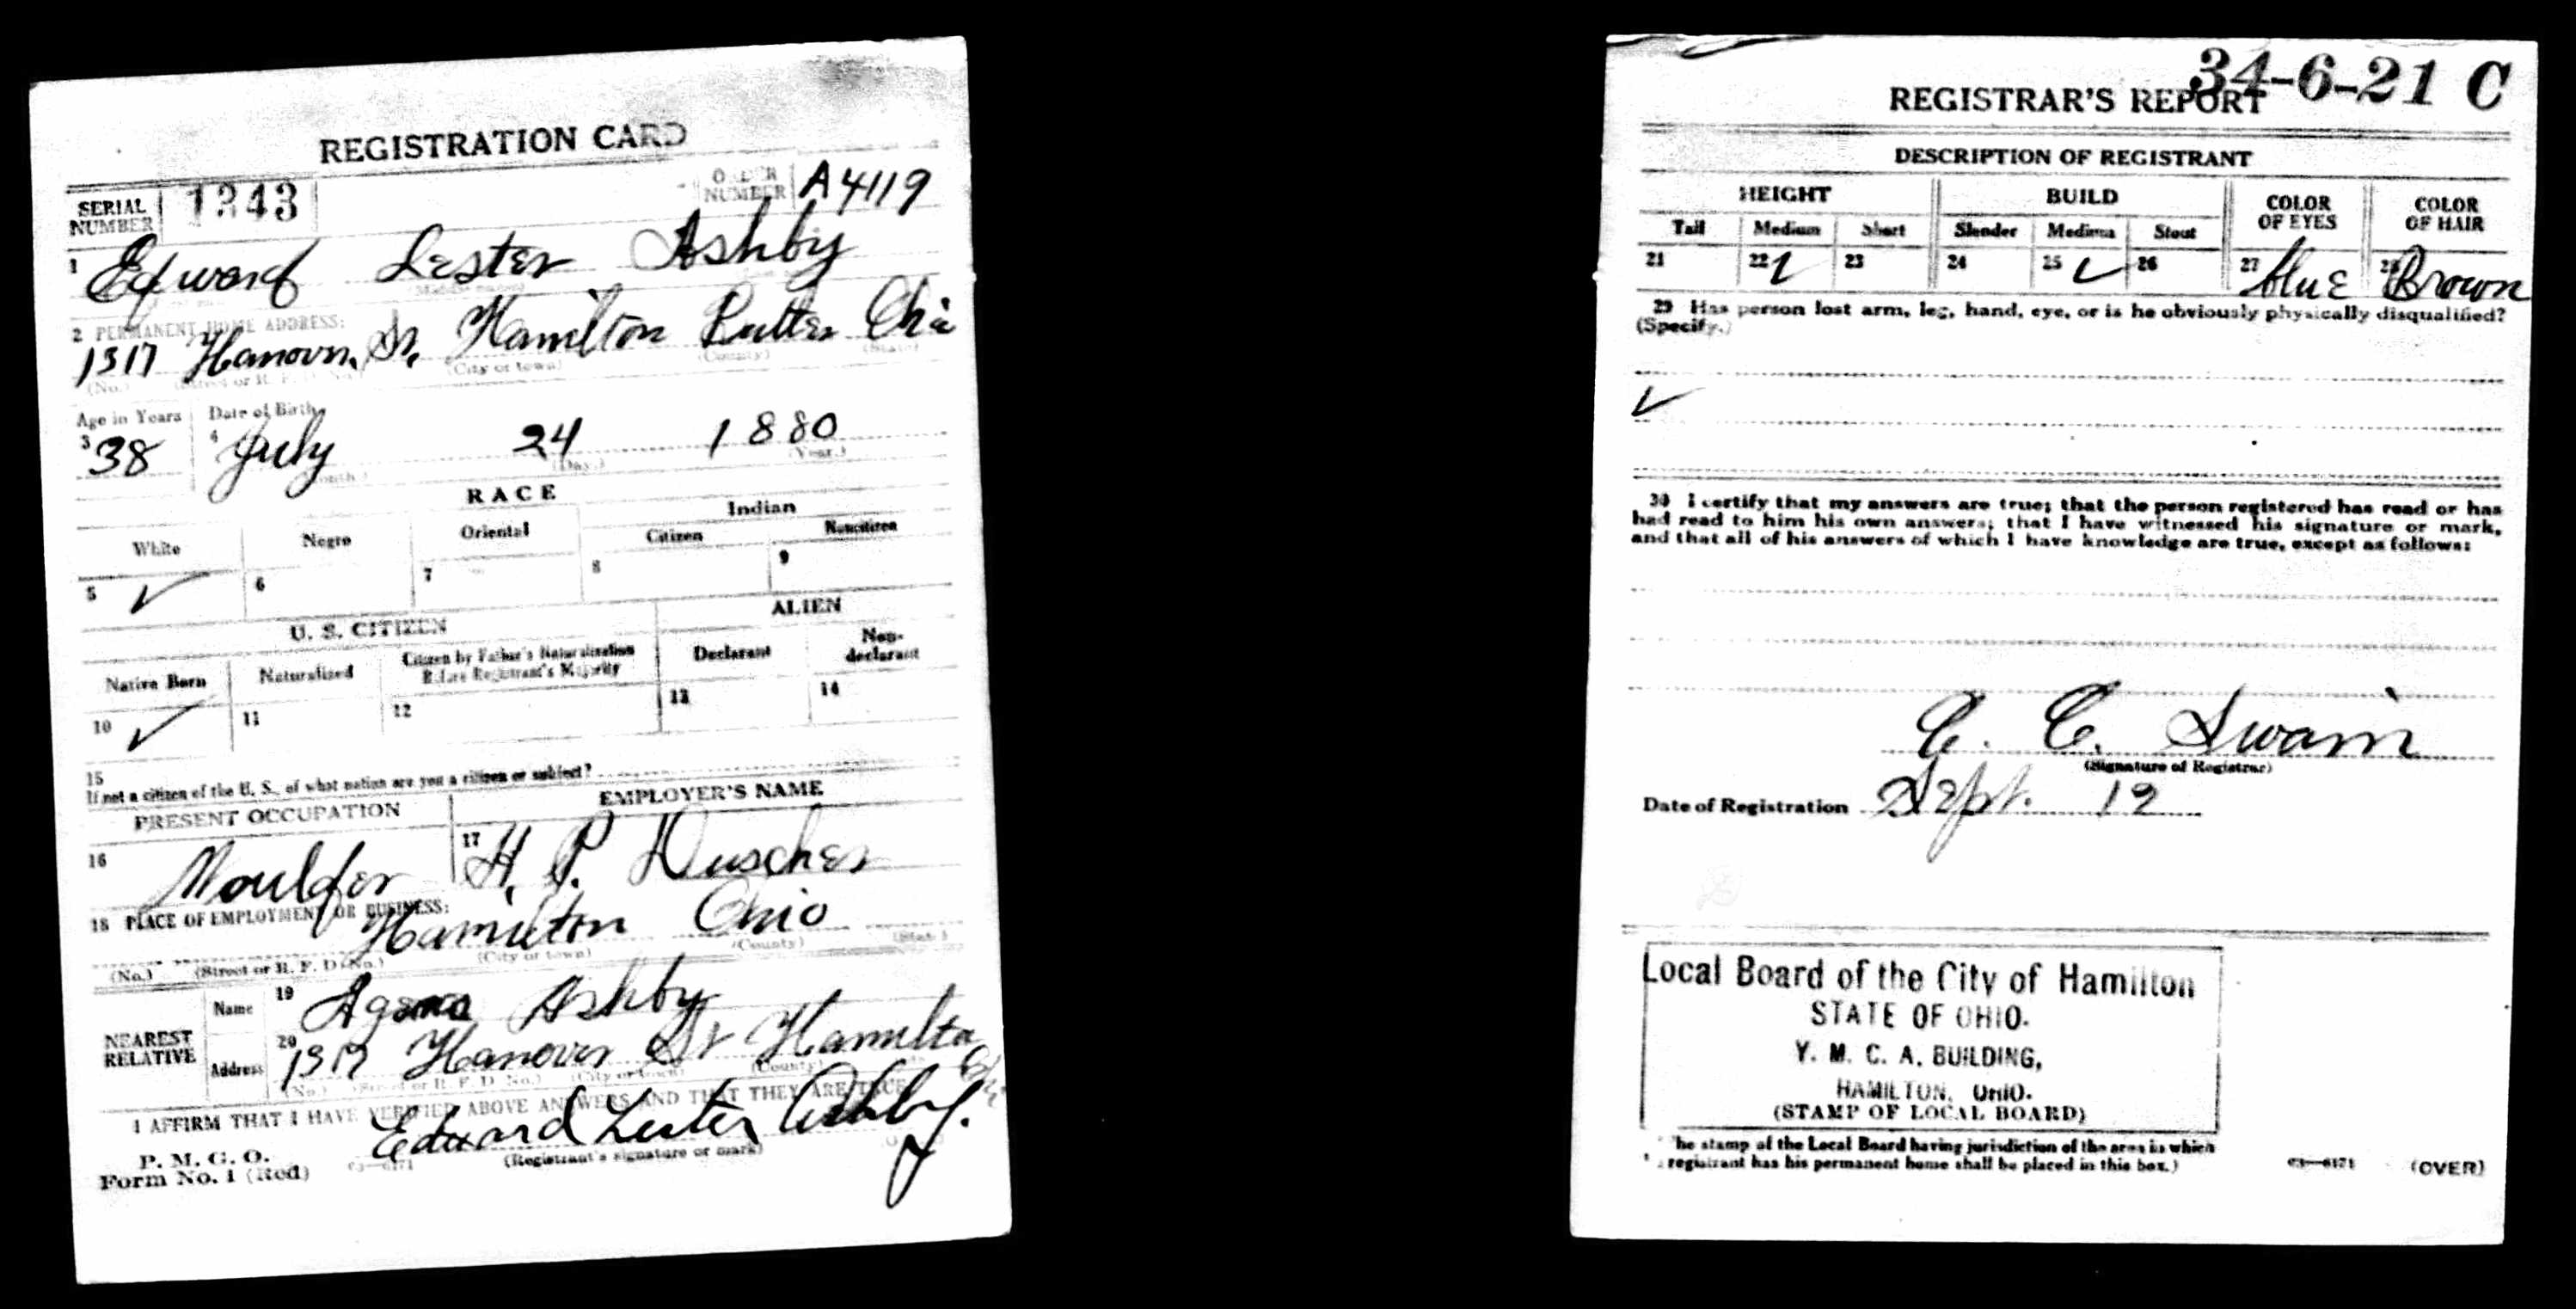 REGISTRATION CARD
SERIAL NUMBER 1343 ORDER NUMBER A4119
1 Edward Lester Ashby
(Middle name)
2 PERMANENT HOME ADDRESS:
1317 Hanover St, Hamilton Butler Ohio
(No.) (Street or R. F. D. No.) (City or town) (County) (State)
Age in Years Date of Birth
3 38 4 July 24 1880
(Month.) (Day.) (Year.)
RACE
White Negro Oriental Indian
Citizen Noncitizen
5 ✓ 6 7 8 9
U. S. CITIZEN ALIEN
Native Born Naturalized Citizen by Father's Naturalization Before Registrant's Majority Declarant Non-declarant
10 ✓ 11 12 13 14
15
If not a citizen of the U. S., of what nation are you a citizen or subject?
PRESENT OCCUPATION EMPLOYER'S NAME
16 Moulder 17 H. P. Duscher
18 PLACE OF EMPLOYMENT OR BUSINESS:
Hamilton Ohio
(No.) (Street or R. F. D. No.) (City or town) (County) (State)
NEAREST RELATIVE Name 19 Ashby
Address 20 1317 Hanover St Hamilton
(No.) (Street or R. F. D. No.) (City or town) (County)
I AFFIRM THAT I HAVE VERIFIED ABOVE ANSWERS AND THAT THEY ARE TRUE
P. M. G. O.
Form No. 1 (Red) 03—6171 Edward Lester Ashby.
(Registrant's signature or mark)
34-6-21 C
REGISTRAR'S REPORT
DESCRIPTION OF REGISTRANT
HEIGHT BUILD COLOR OF EYES COLOR OF HAIR
Tall Medium Short Slender Medium Stout
21 22 ✓ 23 24 25 ✓ 26 27 blue 28 Brown
29 Has person lost arm, leg, hand, eye, or is he obviously physically disqualified?
(Specify.)
✓
30 I certify that my answers are true; that the person registered has read or has
had read to him his own answers; that I have witnessed his signature or mark,
and that all of his answers of which I have knowledge are true, except as follows:
C. C. Swain
(Signature of Registrar)
Date of Registration Sept. 12
Local Board of the City of Hamilton
STATE OF OHIO.
Y. M. C. A. BUILDING,
HAMILTON, OHIO.
(STAMP OF LOCAL BOARD)
The stamp of the Local Board having jurisdiction of the area in which
registrant has his permanent home shall be placed in this box.)
03—6171 (OVER)